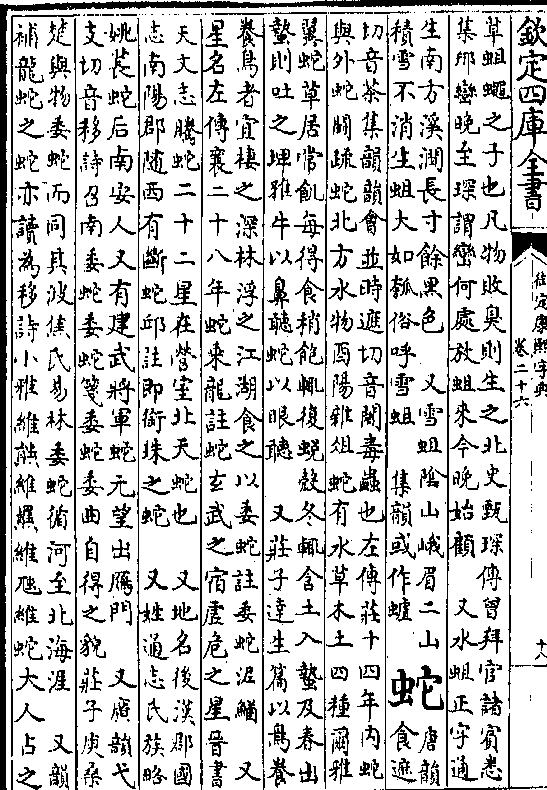 欽定四庫全書
御定康熙字典
卷二十六
十八
草蛆蠅之子也凡物敗臭則生之北史甄琛傳曾拜官諸賓悉
集邢巒晚至琛謂巒何處放蛆來今晚始顧 又水蛆正字通
生南方溪澗長寸餘黑色 又雪蛆陰山峨眉二山
積雪不消生蛆大如瓠俗呼雪蛆 集韻或作蠦
蛇
唐韻
食遮
切音茶集韻韻會並時遮切音闍毒蟲也左傳莊十四年内蛇
與外蛇鬭疏蛇北方水物酉陽雜俎蛇有水草木土四種爾雅
翼蛇草居常飢每得食稍飽輒復蛻殼冬輒含土入蟄及春出
蟄則吐之埤雅牛以鼻聽蛇以眼聽 又莊子達生篇以鳥養
養鳥者宜棲之深林浮之江湖食之以委蛇註委蛇泥鰌 又
星名左傳襄二十八年蛇乘龍註蛇玄武之宿虛危之星晉書
天文志騰蛇二十二星在營室北天蛇也 又地名後漢郡國
志南陽郡隨西有斷蛇邱註即銜珠之蛇 又姓通志氏族略
姚萇蛇后南安人又有建武將軍蛇元望出鴈門 又廣韻弋
支切音移詩召南委蛇委蛇箋委蛇委曲自得之貌莊子庚桑
楚與物委蛇而同其波焦氏易林委蛇循河至北海涯 又韻
補龍蛇之蛇亦讀為移詩小雅維熊維羆維虺維蛇大人占之